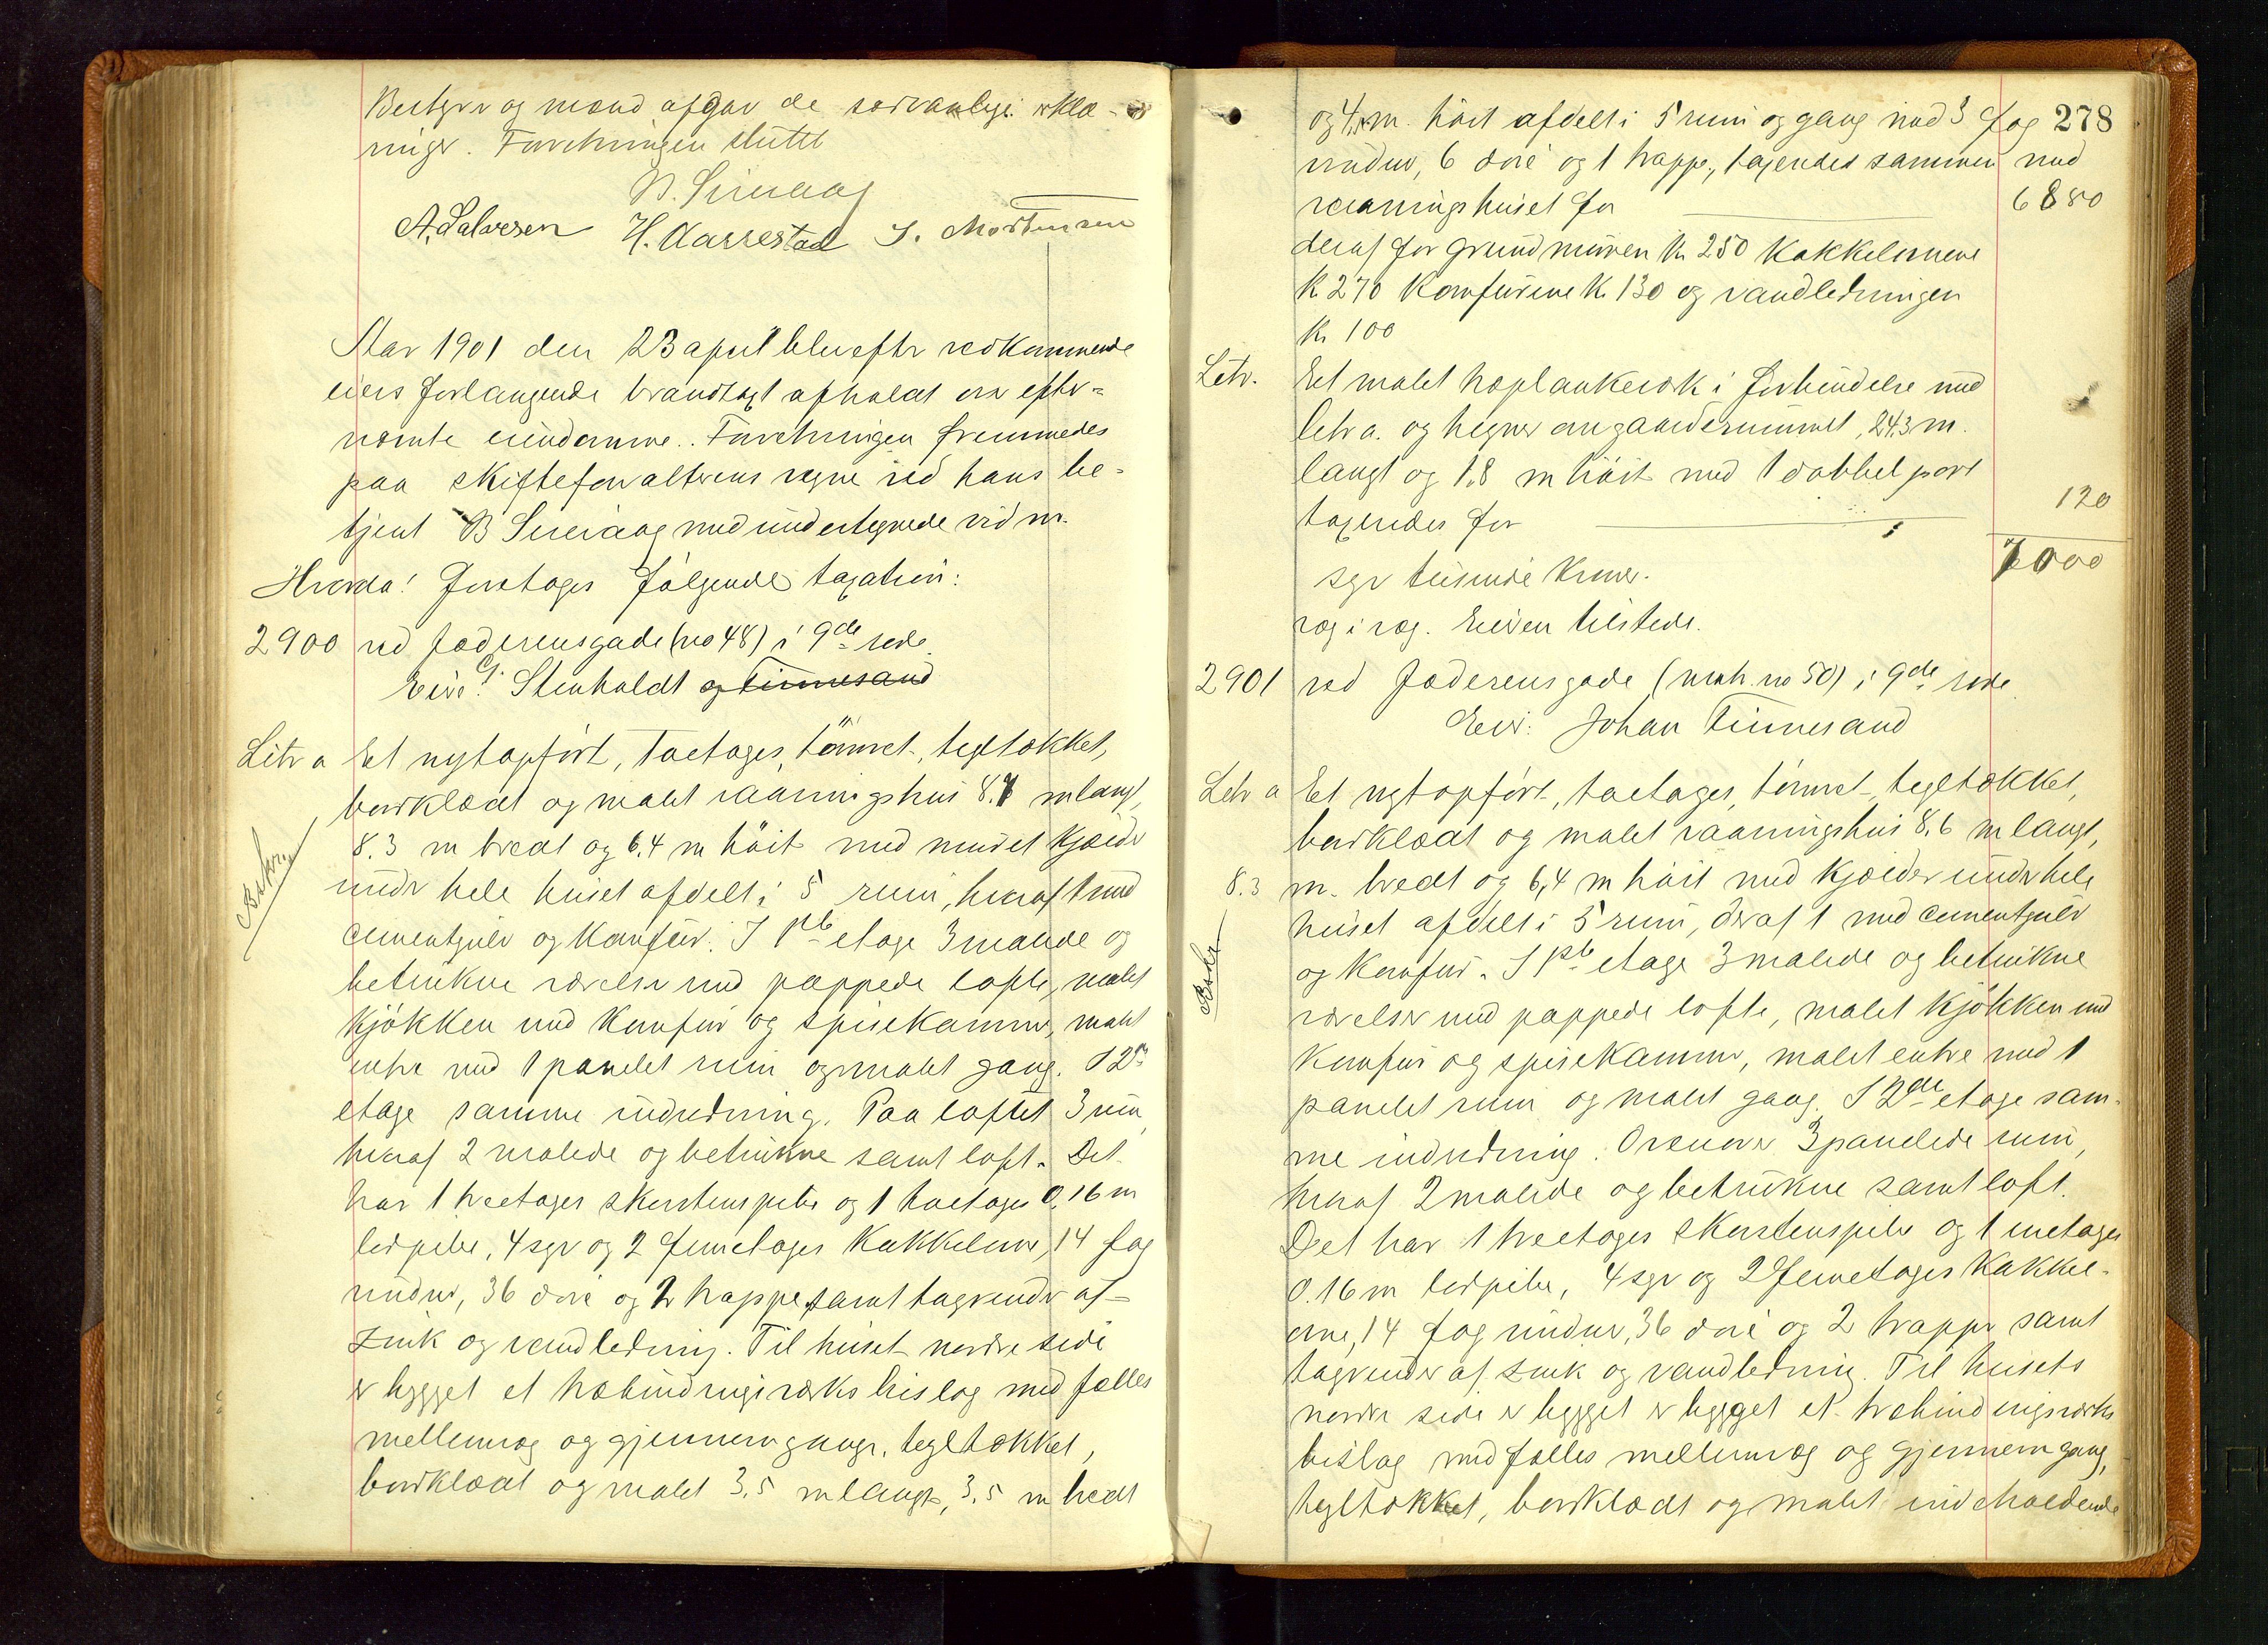 Bestyrer og mænd afgav de sædvanlige erklæ-
ringer. Forretningen sluttet
B. Sireaag
A. Salvesen H. Aarrestad S. Mortensen
Aar 1901 den 23 april blev efter vedkommende
eiers forlangende brandtaxt afholdt over efter-
nævnte eiendomme. Forretningen fremmedes
paa skifteforvalterens vegne ved hans be-
tjent B Sireaag med undertegnede vidner.
Hvorda! foretoges følgende taxation:
2900 ved Jæderensgade (no 48) i 9de rode
Eier: G. Stenholdt og Tinnesand
Litr a Et nytopført, toetages, tømret, tegltækket,
bordklædt og malet vaaningshus 8.7 m langt,
8.3 m bredt og 6.4 m høit med muret kjælder
under hele huset afdelt i 5 rum, hvoraf 1 med
cementgulv og komfur. I 1ste etage 3 malede og
betrukne værelser med pappede lofte, malet
kjøkken med komfur og spisekammer, malet
entre med 1 panelet rum og malet gang. I 2den
etage samme indredning. Paa loftet 3 rum,
hvoraf 2 malede og betrukne samt loft. Det
har 1 treetages skorstenspibe og 1 toetages 0.16 m
lerpibe, 4 syv og 2 femetages kakkelovne, 14 fag
vinduer, 36 døre og 2 trapper samt tagrender af
zink og vandledning. Til huset nordre side
er bygget et træbindingsværks bislag med fælles
mellemvæg og gjennemgange, tegltækket,
bordklædt og malet 3.5 m langt, 3.5 m bredt
278
og 4. m. høit afdelt i 5 rum og gang med 3 fag
vinduer, 6 døre og 1 trappe, taxeredes sammen med
vaaningshuset for 6880
deraf for grundmuren kr 250 kakkelovnene
kr 270 komfurene kr 130 og vandledningen
kr 100
Litr. Et malet træplankeværk i forbindelse med
litr a. og hegner om gaardsrummet, 24.3 m.
langt og 1.8 m høit med 1 dobbel port
taxeredes for 120
7000
syv tusinde kroner.
væg i væg. Eieren tilstede.
2901 ved Jæderensgade (matr. no 50) i 9de rode
Eier: Johan Tinnesand
Litr a Et nytopført, toetages, tømret, tegltækket,
bordklædt og malet vaaningshus 8.6 m langt,
8.3 m. bredt og 6,4 m høit med kjælder under hele
huset afdelt i 5 rum, deraf 1 med cementgulv
og komfur. I 1ste etage 3 malede og betrukne
værelser med pappede lofte, malet kjøkken med
komfur og spisekammer, malet entre med 1
panelet rum og malet gang. I 2den etage sam-
me indredning. Ovenover 3 panelede rum,
hvoraf 2 malede og betrukne samt loft.
Det har 1 treetages skorstenspibe og 1 enetages
0.16 m lerpibe, 4 syv og 2 femetages kakkel-
ovne, 14 fag vinduer, 36 døre og 2 trapper samt
tagrender af zink og vandledning. Til husets
nordre side er bygget er bygget et træbindingsværks
bislag med fælles mellemvæg og gjennemgang,
tegltækket, bordklædt og malet indeholdende